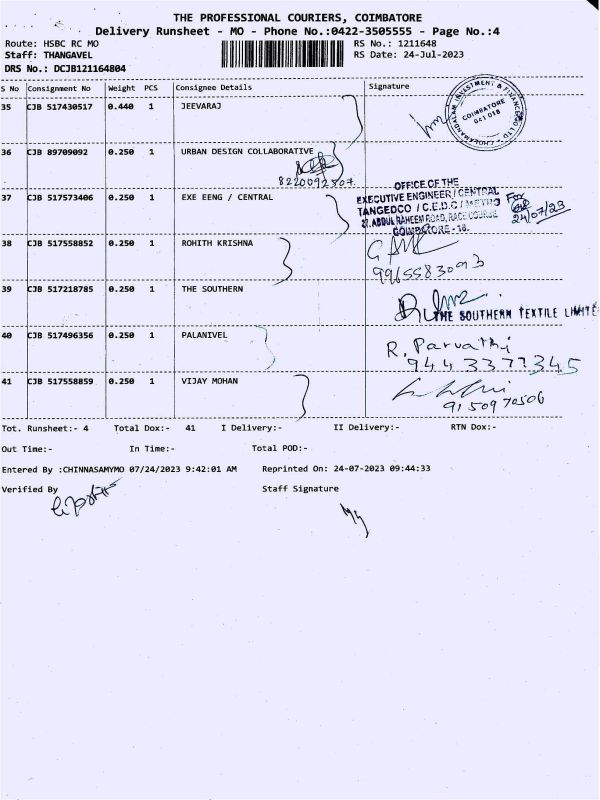 THE PROFESSIONAL COURIERS, COIMBATORE
Delivery Runsheet - MO - Phone No.:0422-3505555 - Page No.:4
Route: HSBC RC MO RS No.: 1211648
Staff: THANGAVEL RS Date: 24-Jul-2023
DRS No.: DCJB121164804
S No Consignment No Weight PCS Consignee Details Signature
35 CJB 517430517 0.440 1 JEEVARAJ
CHOLAMANDALAM INVESTMENT & FINANCE CO LTD
COIMBATORE
641 018
36 CJB 89709092 0.250 1 URBAN DESIGN COLLABORATIVE
8220092807
37 CJB 517573406 0.250 1 EXE EENG / CENTRAL
OFFICE OF THE
EXECUTIVE ENGINEER / CENTRAL
TANGEDCO / C.E.D.C / METRO
ABDUL RAHEEM ROAD, RACE COURSE
COIMBATORE - 18.
For
24/07/23
38 CJB 517558852 0.250 1 ROHITH KRISHNA
9965583093
39 CJB 517218785 0.250 1 THE SOUTHERN
THE SOUTHERN TEXTILE LIMITE
40 CJB 517496356 0.250 1 PALANIVEL
R. Parvathi
9443377345
41 CJB 517558859 0.250 1 VIJAY MOHAN
9150970506
Tot. Runsheet:- 4 Total Dox:- 41 I Delivery:- II Delivery:- RTN Dox:-
Out Time:- In Time:- Total POD:-
Entered By :CHINNASAMYMO 07/24/2023 9:42:01 AM Reprinted On: 24-07-2023 09:44:33
Verified By Staff Signature